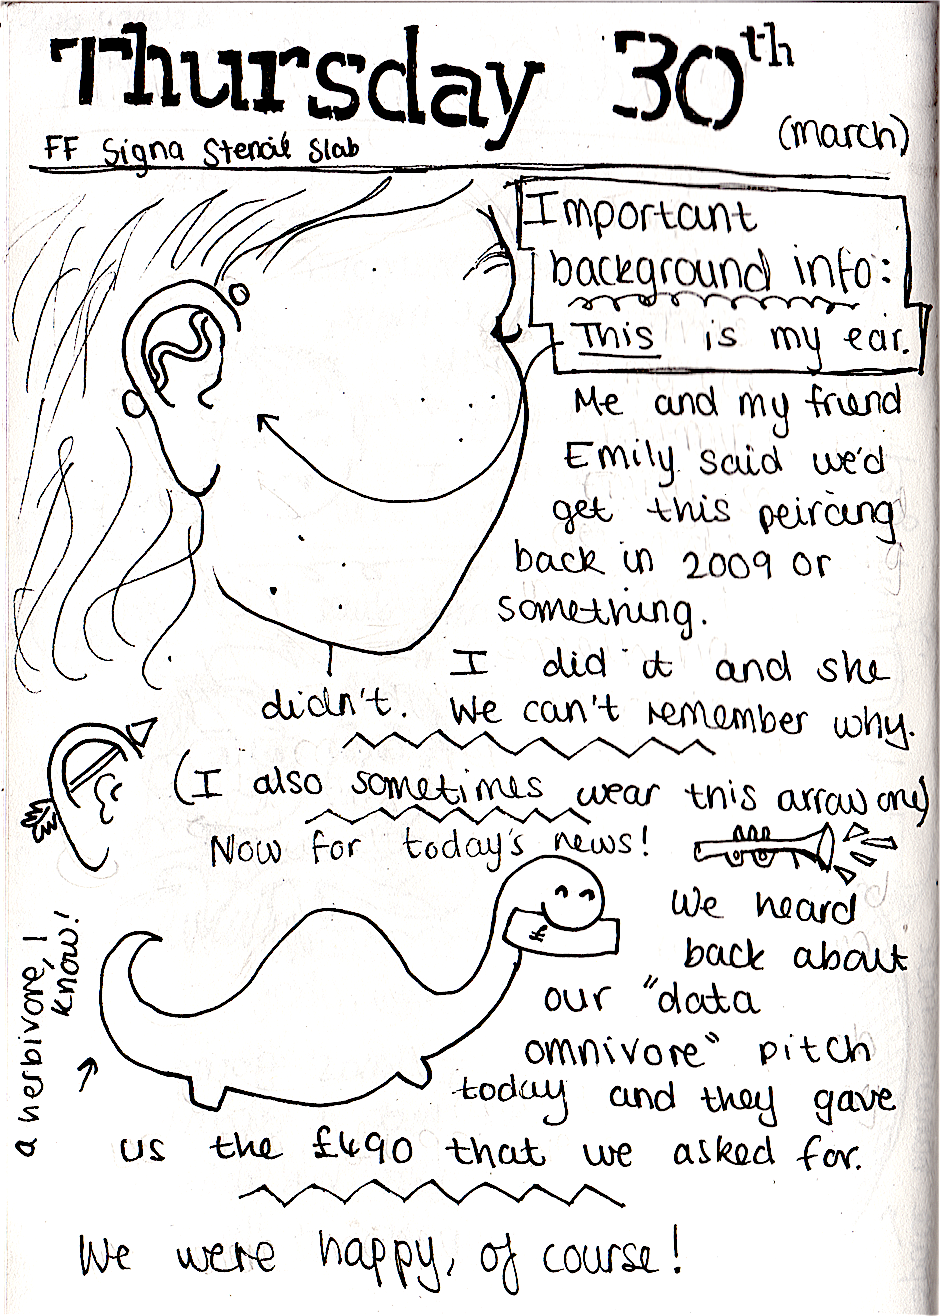 Thursday 30th
(march)
FF Signa Stencil Slab
Important
background info:
This is my ear.
Me and my friend
Emily said we'd
get this peircing
back in 2009 or
something.
I did it and she
didn't. We can't remember why.
(I also sometimes wear this arrow one)
Now for today's news!
We heard
back about
our "data
omnivore" pitch
today and they gave
us the £490 that we asked for.
a herbivore, I
know!
We were happy, of course!